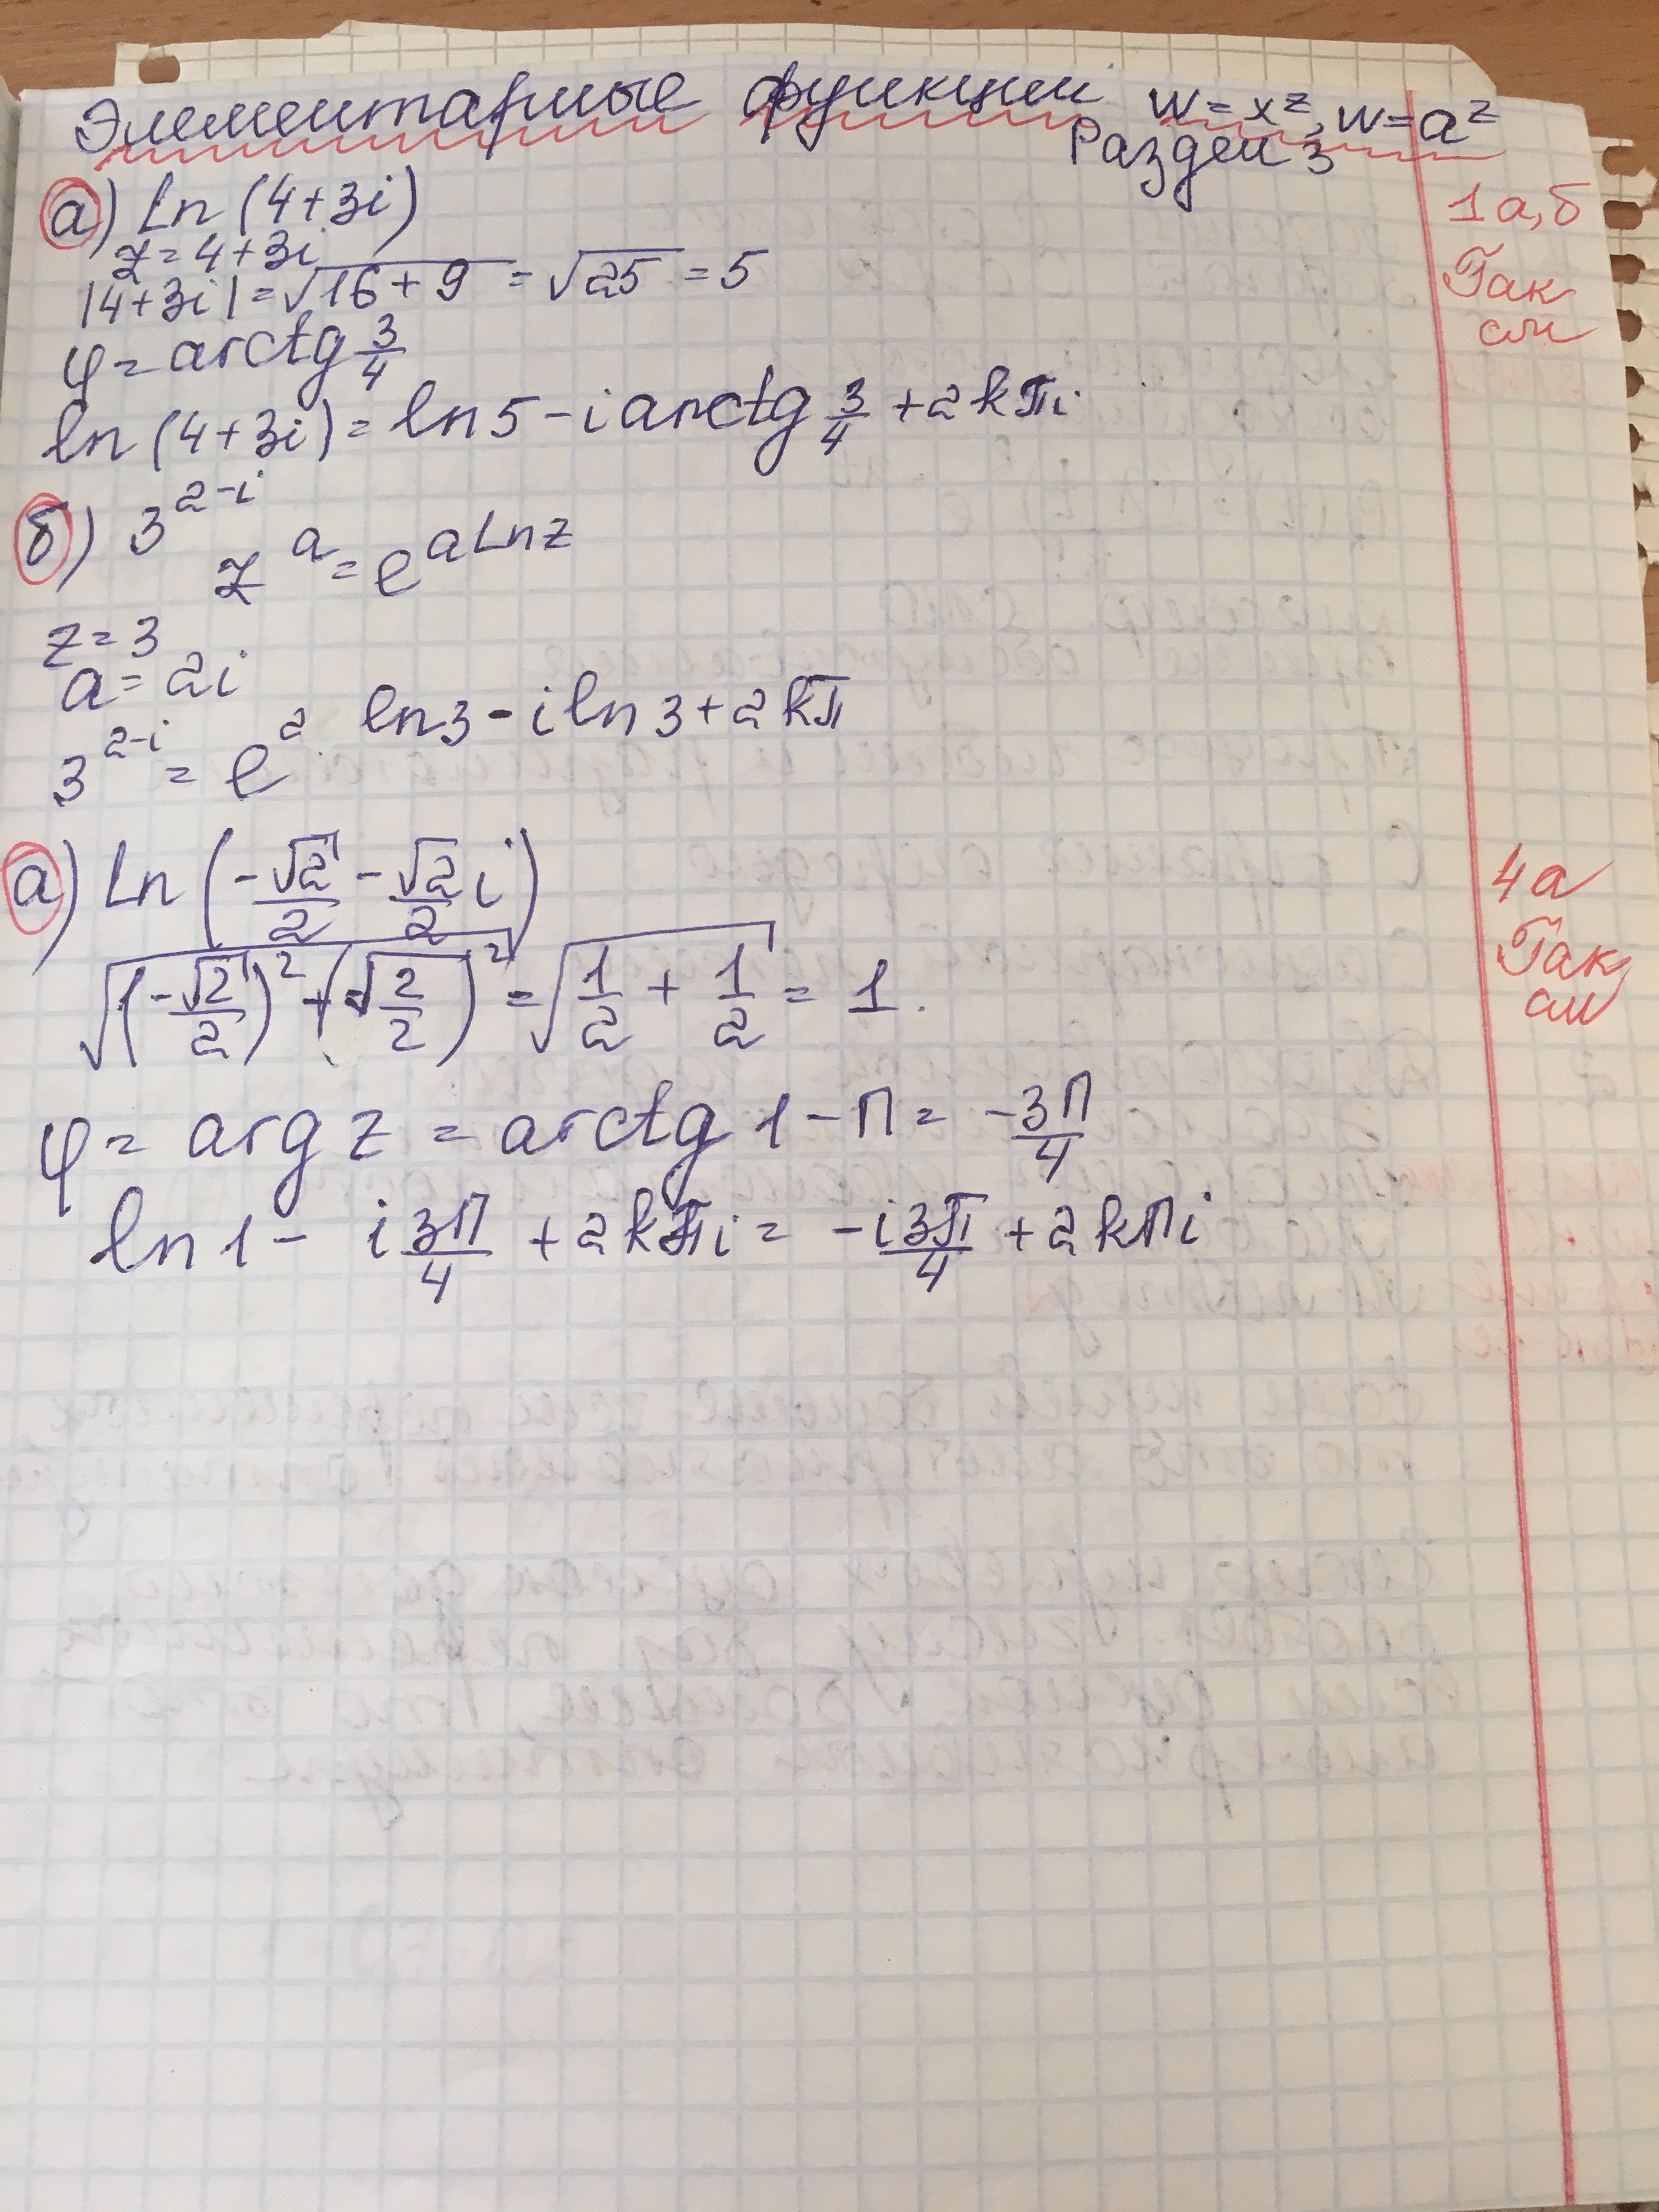 Элементарные функции w = x^z, w = a^z
Раздел 3
а) Ln (4+3i)
1 а, б
z = 4+3i
Так
|4+3i| = √16+9 = √25 = 5
сли
φ = arctg 3/4
ln (4+3i) = ln5 - i arctg 3/4 + 2kπi
б) 3^2-i
z^a = e^a Ln z
z = 3
a = 2i
3^2-i = e^2 ln3 - i ln 3 + 2kπ
а) Ln (-√2/2 - √2/2 i)
4а
√(-√2/2)² + (-√2/2)² = √1/2 + 1/2 = 1.
Так
сли
φ = arg z = arctg 1 - π = -3π/4
ln 1 - i 3π/4 + 2kπi = -i 3π/4 + 2kπi